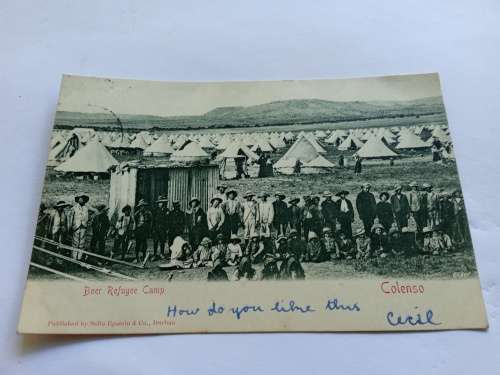 Boer Refugee Camp
Colenso
How do you like this
Cecil
Published by Sallo Epstein & Co., Durban